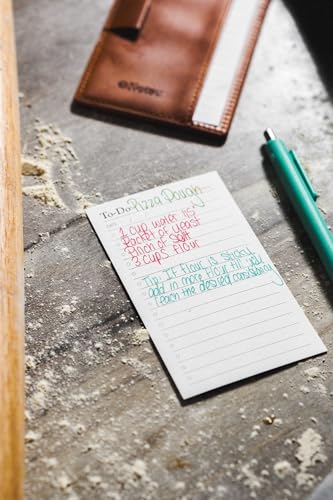 To-Do Pizza Dough
1 cup water 115°
Packet of Yeast
Pinch of Salt
3 cups flour
Tip: If flour is sticky
add in more flour till you
reach the desired consistency